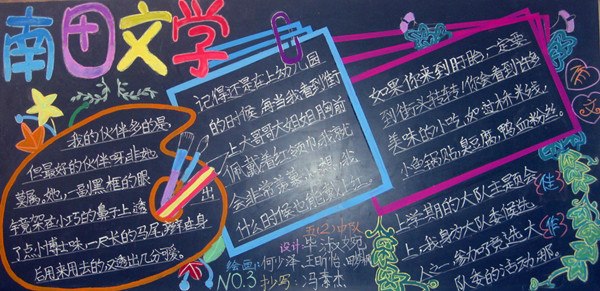 南田文学
我的伙伴多的是
但最好的伙伴呀非她
莫属。她,一副黑框的眼
镜架在小巧的鼻子上,透出
了点小博士味,一尺长的马尾辫在身
后甩来甩去的,又透出几分可爱。
记得还是在上幼儿园
的时候,每当我看到街
上大哥哥大姐姐胸前
佩戴着红领巾,我就
会非常羡慕,
什么时候也能
如果你来到盱眙,一定要
到街头转转!你会看到许多
美味的小吃,如过桥米线,
小鱼锅贴,臭豆腐,鸭血粉丝。
上学期的大队主席会
上,我身为大队委候选
人之一,参加了竞选大
队委的活动,那
佳
作
五(2)中队
设计:毕淑婉
绘画:何少泽、王昕怡、
NO.3 抄写:冯素杰